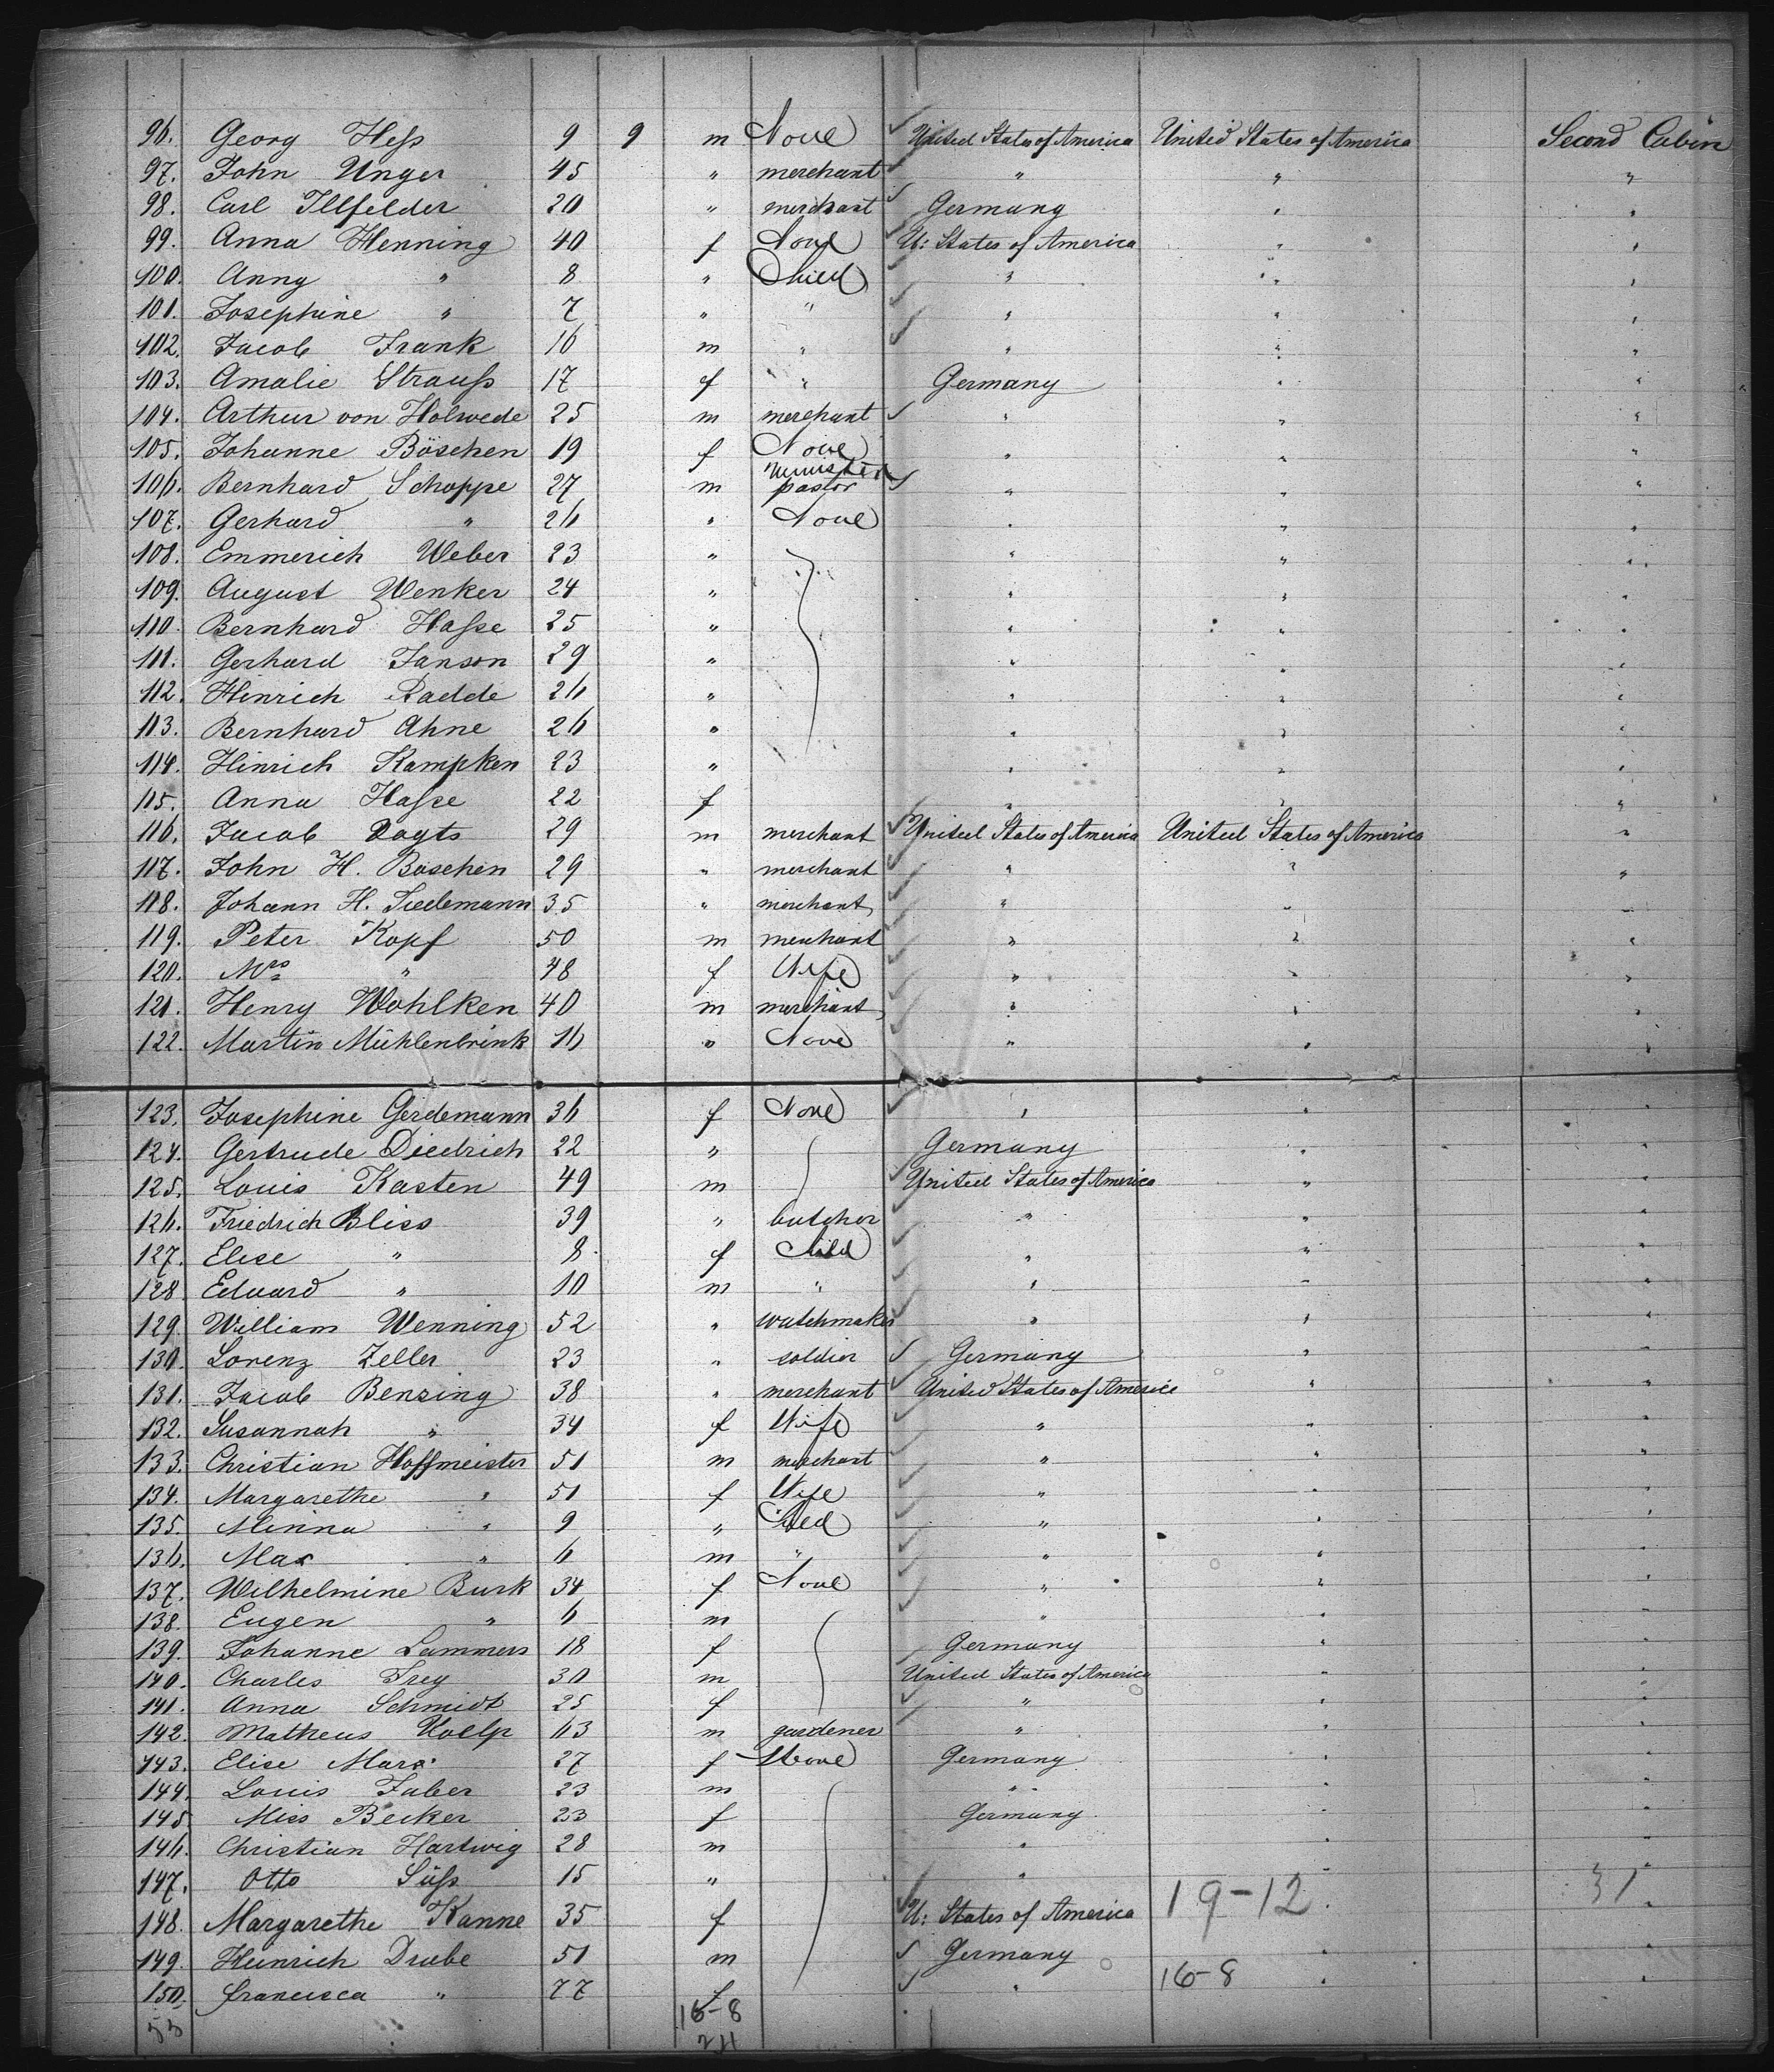 96. Georg Heſs 9 9 m None United States of America United States of America Second Cabin
97. John Unger 45 " merchant " " "
98. Carl Illfelder 20 " merchant Germany " "
99. Anna Henning 40 f None U: States of America " "
100. Anny " 8 " Child " " "
101. Josephine " 7 " " " " "
102. Jacob Frank 16 m " " " "
103. Amalie Strauſs 17 f " Germany " "
104. Arthur von Holwede 25 m merchant " " "
105. Johanne Böschen 19 f None " " "
minister
106. Bernhard Schoppe 27 m pastor " " "
107. Gerhard " 26 " None " " "
108. Emmerich Weber 23 " " " "
109. August Wenker 24 " " " "
110. Bernhard Haſse 25 " " " "
111. Gerhard Janson 29 " " " "
112. Hinrich Radde 26 " " " "
113. Bernhard Ahne 26 " " " "
114. Hinrich Kampken 23 " " " "
115. Anna Haſse 22 f " " "
116. Jacob Vogts 29 m merchant United States of America United States of America "
117. John H. Böschen 29 " merchant " " "
118. Johann H. Tiedemann 35 " merchant " " "
119. Peter Kopf 50 m merchant " " "
120. Mrs " 48 f Wife " " "
121. Henry Wohlken 40 m merchant " " "
122. Martin Mühlenbrink 16 " None " " "
123. Josephine Gerdemann 36 f None " " "
124. Gertrude Diedrich 22 " Germany " "
125. Louis Kasten 49 m United States of America " "
126. Friedrich Bliss 39 " butcher " " "
127. Elise " 8 f Child " " "
128. Eduard " 10 m " " " "
129. William Wenning 52 " watchmaker " " "
130. Lorenz Zeller 23 " soldier Germany " "
131. Jacob Bensing 38 " merchant United States of America " "
132. Susannah " 34 f Wife " " "
133. Christian Hoffmeister 51 m merchant " " "
134. Margarethe " 51 f Wife " " "
135. Minna " 9 " Child " " "
136. Max " 6 m " " " "
137. Wilhelmine Burk 34 f None " " "
138. Eugen " 6 m " " "
139. Johanne Lammers 18 f Germany " "
140. Charles Frey 30 m United States of America " "
141. Anna Schmidt 25 f " " "
142. Matheus 63 m gardener " " "
143. Elise Marx 27 f None Germany " "
144. Louis Faber 23 m " " "
145 Miss Becker 23 f Germany " "
146. Christian Hartwig 28 m " " "
147. Otto Süſs 15 " " " "
148. Margarethe Kanne 35 f U: States of America 19-12 " 31 "
149. Heinrich Drube 51 m Germany " "
150. Francisca " 77 f " 16-8 " "
53 16-8
24